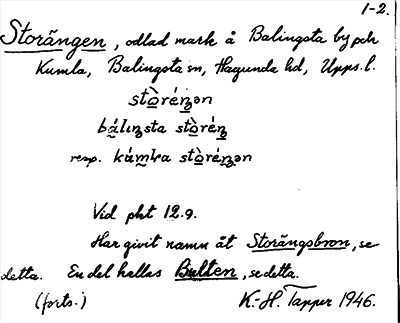 1-2.
Storängen, odlad mark å Balingsta by och
Kumla, Balingsta sn, Hagunda hd, Upps. l.
stòréŋən
báliŋsta stòréŋ
resp. kúmla stòréŋən
Vid pkt 12.9.
Har givit namn åt Storängsbron, se
detta. En del kallas Bulten, se detta.
(forts.) K.-H. Tapper 1946.